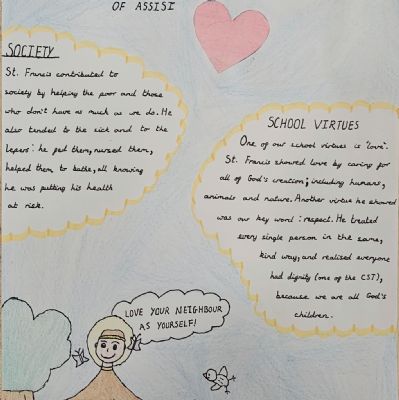 OF ASSISI
SOCIETY
St. Francis contributed to
society by helping the poor and those
who don't have as much as we do. He
also tended to the sick and to the
lepers: he fed them, nursed them,
helped them to bathe, all knowing
he was putting his health
at risk.
SCHOOL VIRTUES
One of our school virtues is "love".
St. Francis showed love by caring for
all of God's creation; including humans,
animals and nature. Another virtue he showed
was our key word: respect. He treated
every single person in the same,
kind way, and realised everyone
had dignity (one of the CST),
because we are all God's
children.
LOVE YOUR NEIGHBOUR
AS YOURSELF!